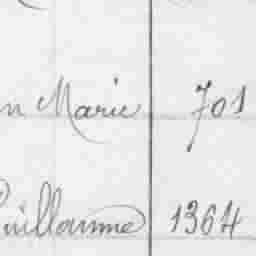 n Marie 701
Guillaume 1364